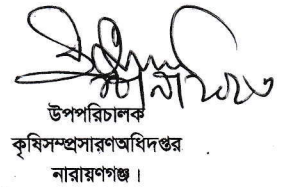 উপপরিচালক
কৃষিসম্প্রসারণঅধিদপ্তর
নারায়ণগঞ্জ।